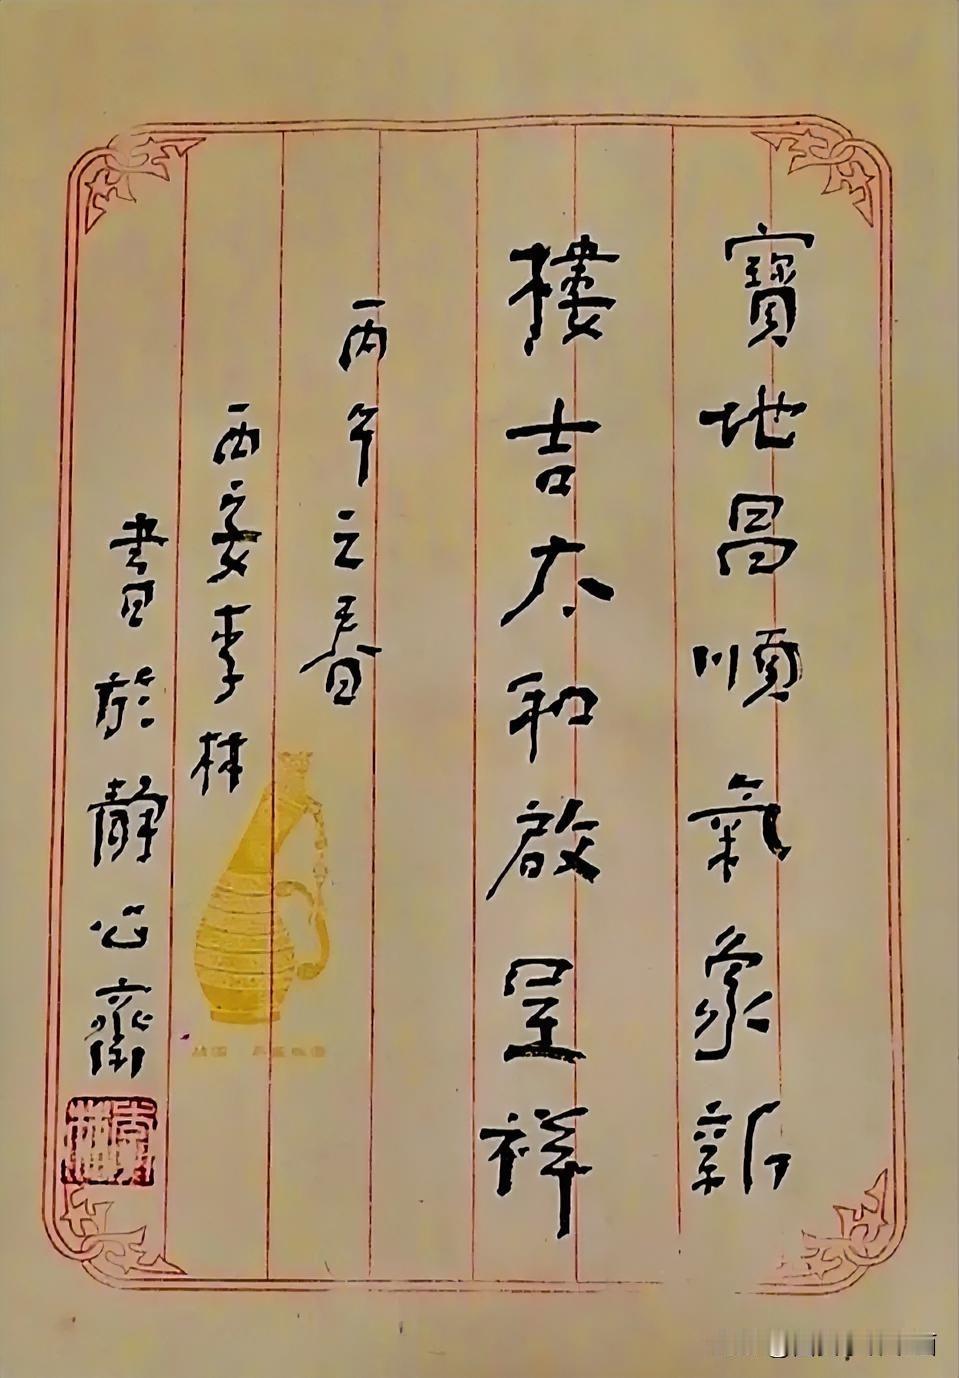 寶地昌順氣象新
樓吉太和啟呈祥
丙午之春
西安李林
書於靜心齋
李林